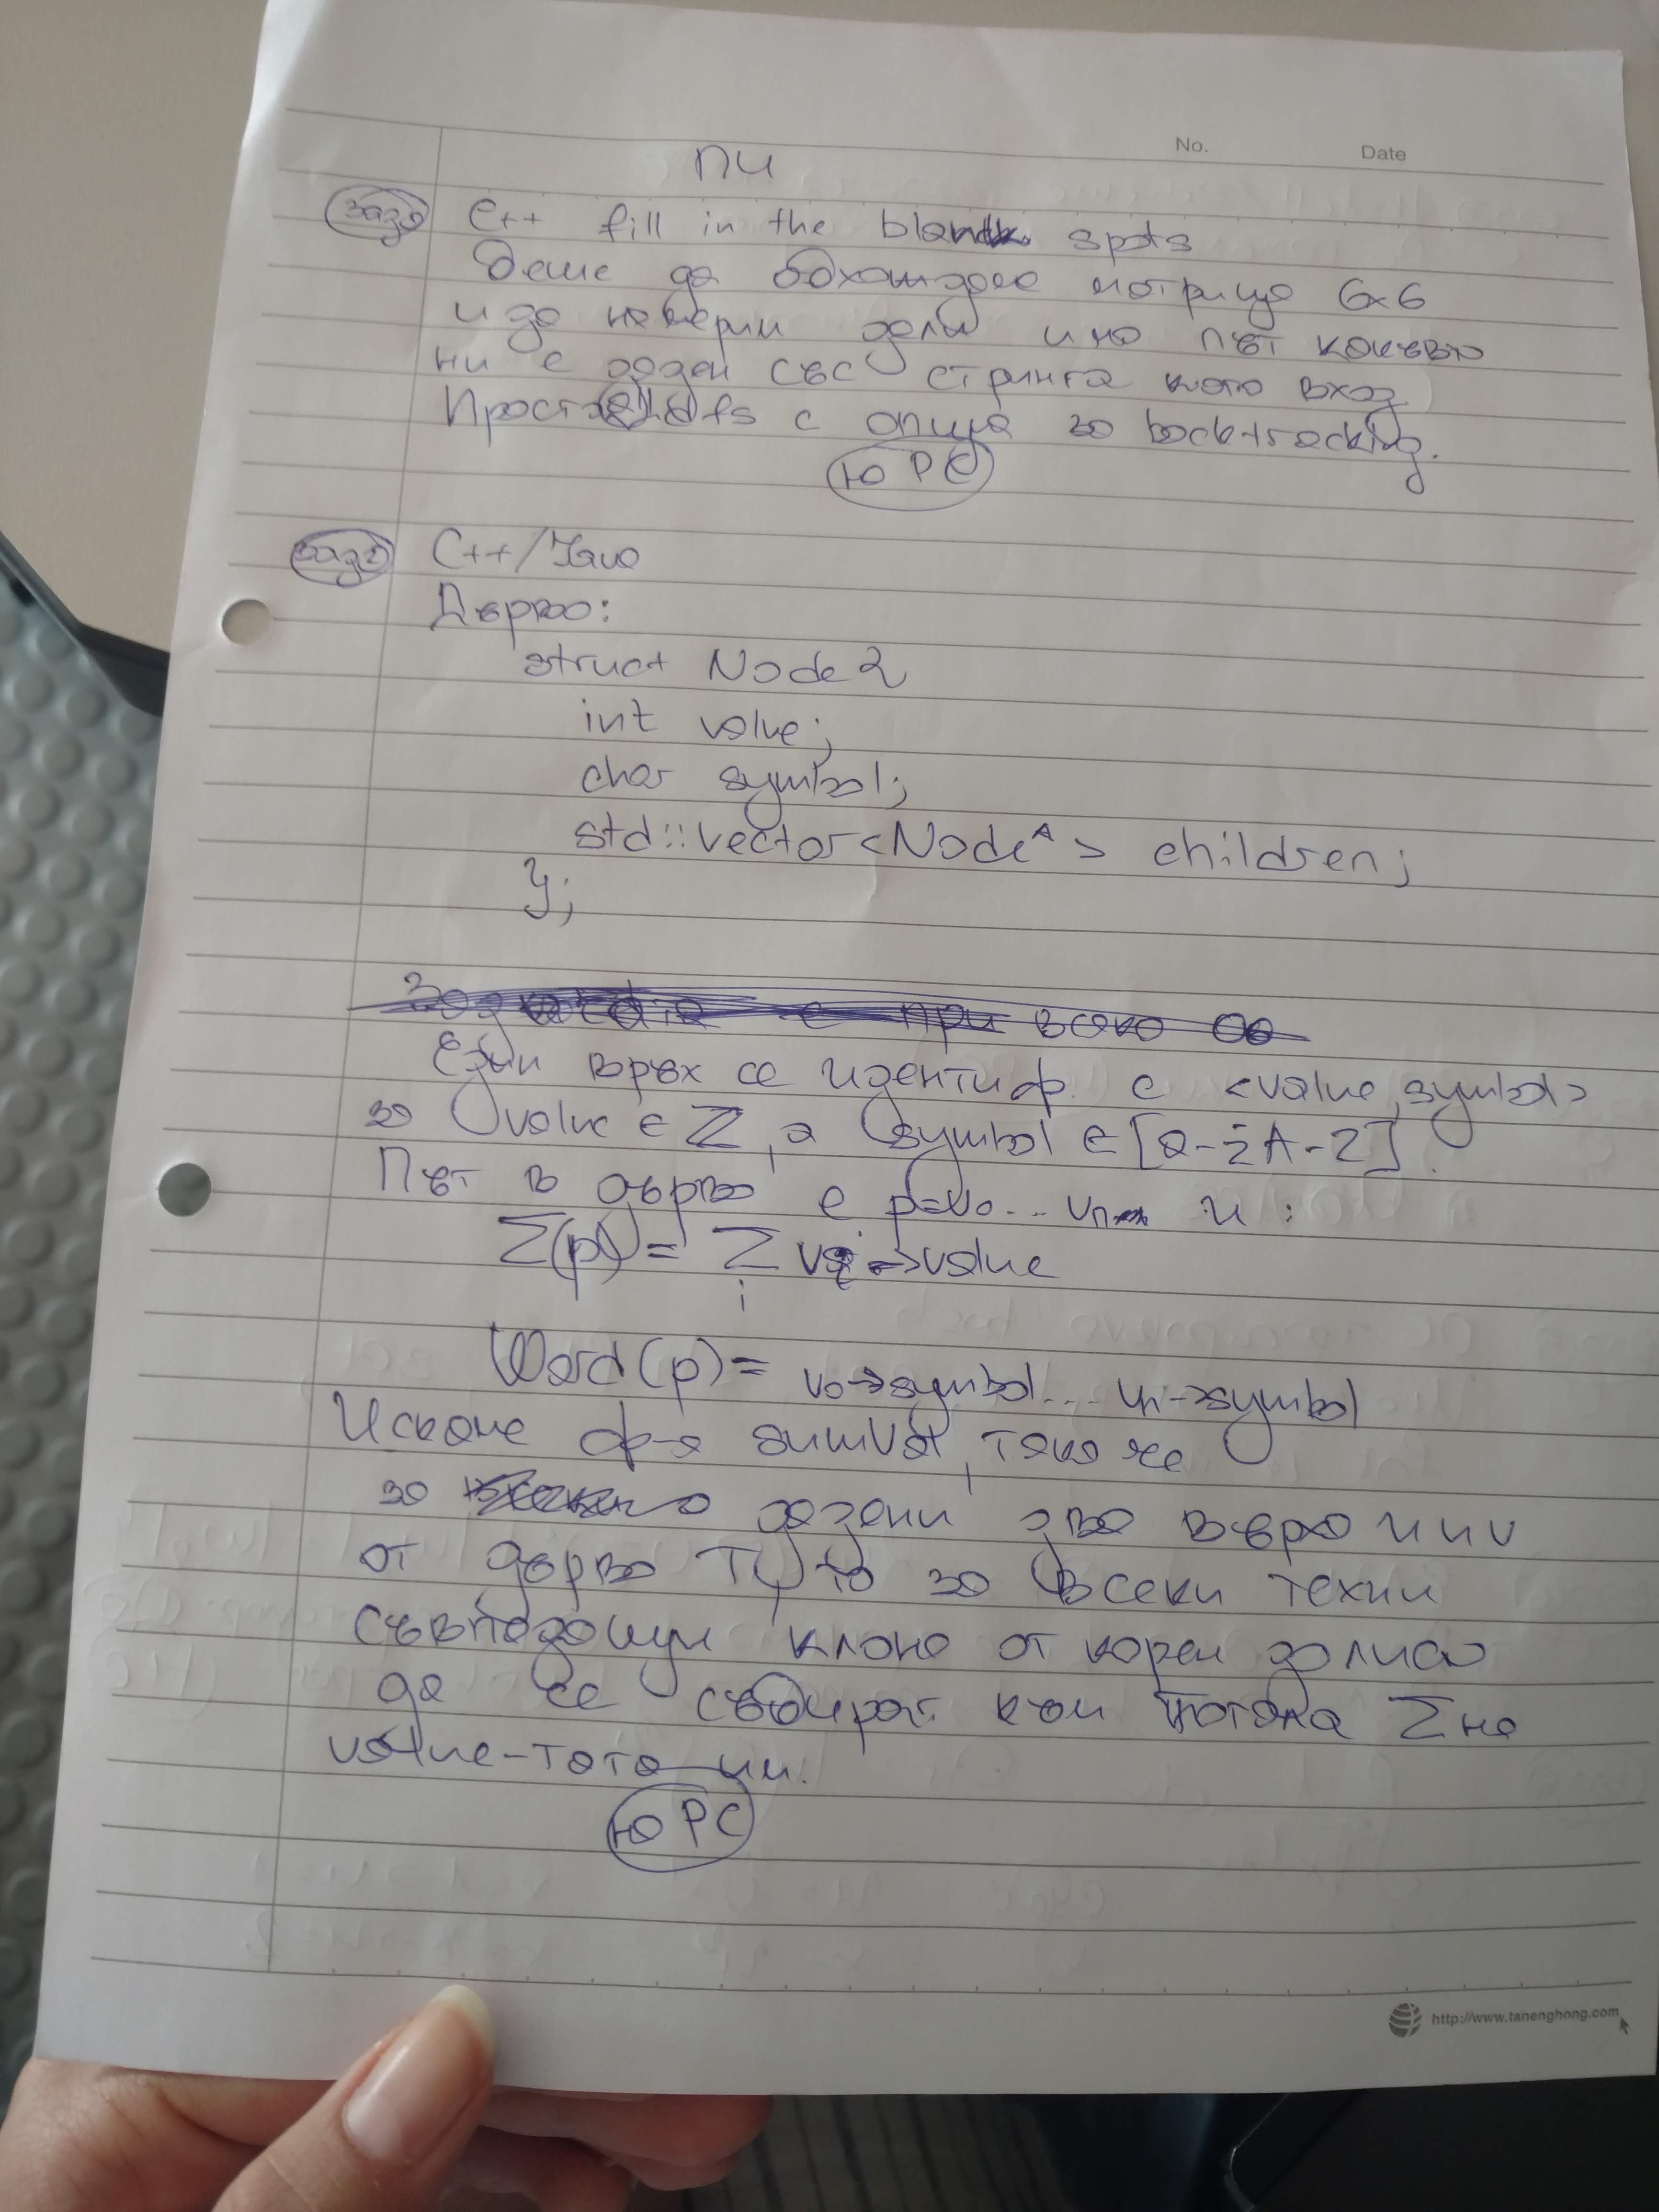 No. Date
ПИ
зад1 C++ fill in the blank spots
Беше да обхождаме матрица 6x6
и да намерим дали има път какъвто
ни е даден със стринга като вход.
Проста dfs с опция за backtracking.
10 PC
зад2 C++/Java
Дърво:
struct Node {
int value;
char symbol;
std::vector<Node*> children;
};
Един връх се идентиф. с <value, symbol>
за value ∈ Z, а symbol ∈ [a-zA-Z].
Път в дърво е p=v0...vn и:
Σ(p) = Σ vi->value
i
Word(p) = v0->symbol...vn->symbol
Искаме ф-я sumVal, така че
за дадени два върха u и v
от дърво T, то за всеки техни
съвпадащи клона от корен до листо
да се събират към потока Σ на
value-тата им.
10 PC
http://www.tanenghong.com